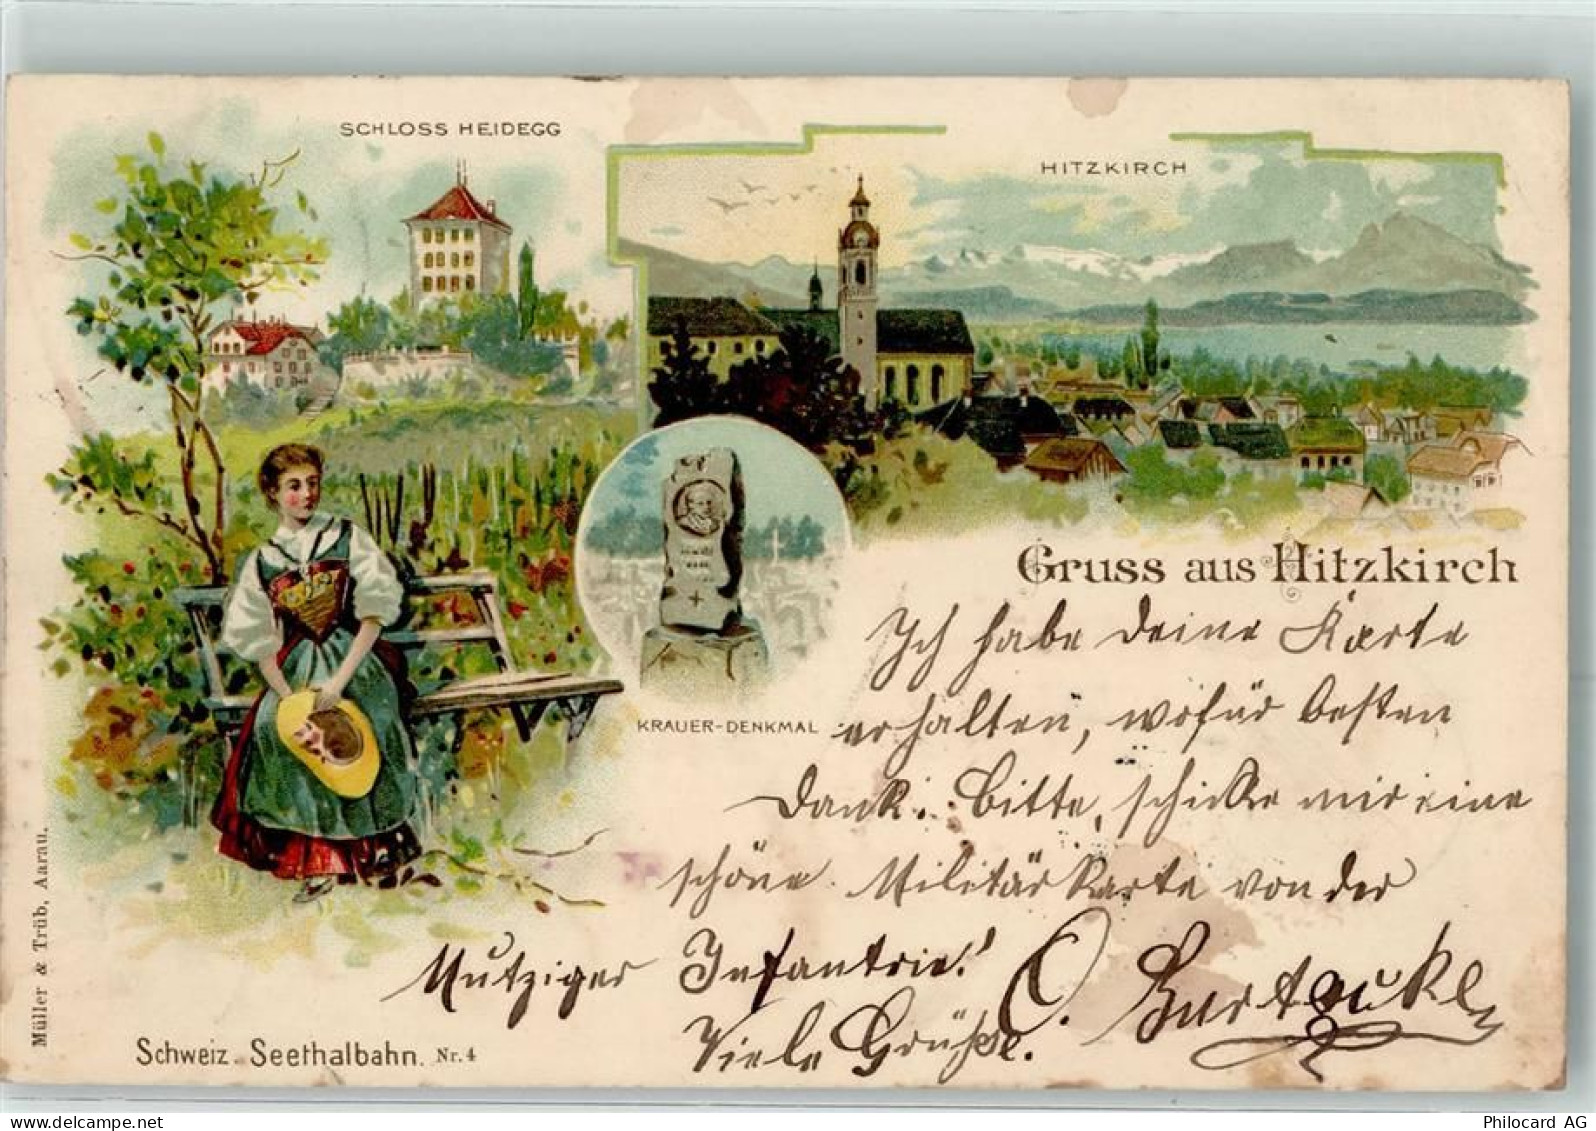 SCHLOSS HEIDEGG
HITZKIRCH
KRAUER-DENKMAL
Gruss aus Hitzkirch
Ich habe deine Karte
erhalten, wofür besten
Dank. Bitte, schicke mir eine
schöne Militärkarte von der
Mutziger Infanterie!
Viele Grüße. O.
Müller & Trüb, Aarau.
Schweiz. Seethalbahn. Nr. 4
Philocard AG